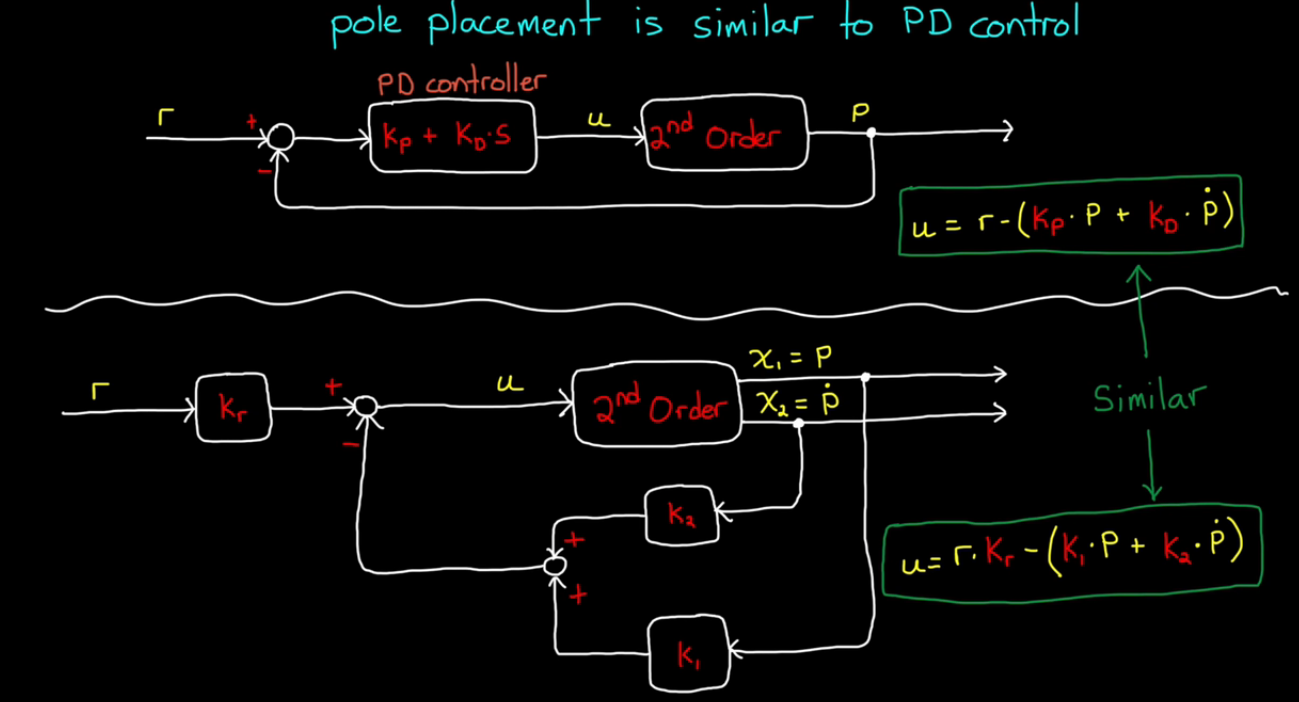 pole placement is similar to PD control
PD controller
r
+
-
Kp + KD·S
u
2nd Order
P
u = r - (Kp · P + KD · ṗ)
r
Kr
+
-
u
2nd Order
x₁ = P
x₂ = ṗ
Similar
K₂
+
+
K₁
u = r · Kr - (K₁ · P + K₂ · ṗ)